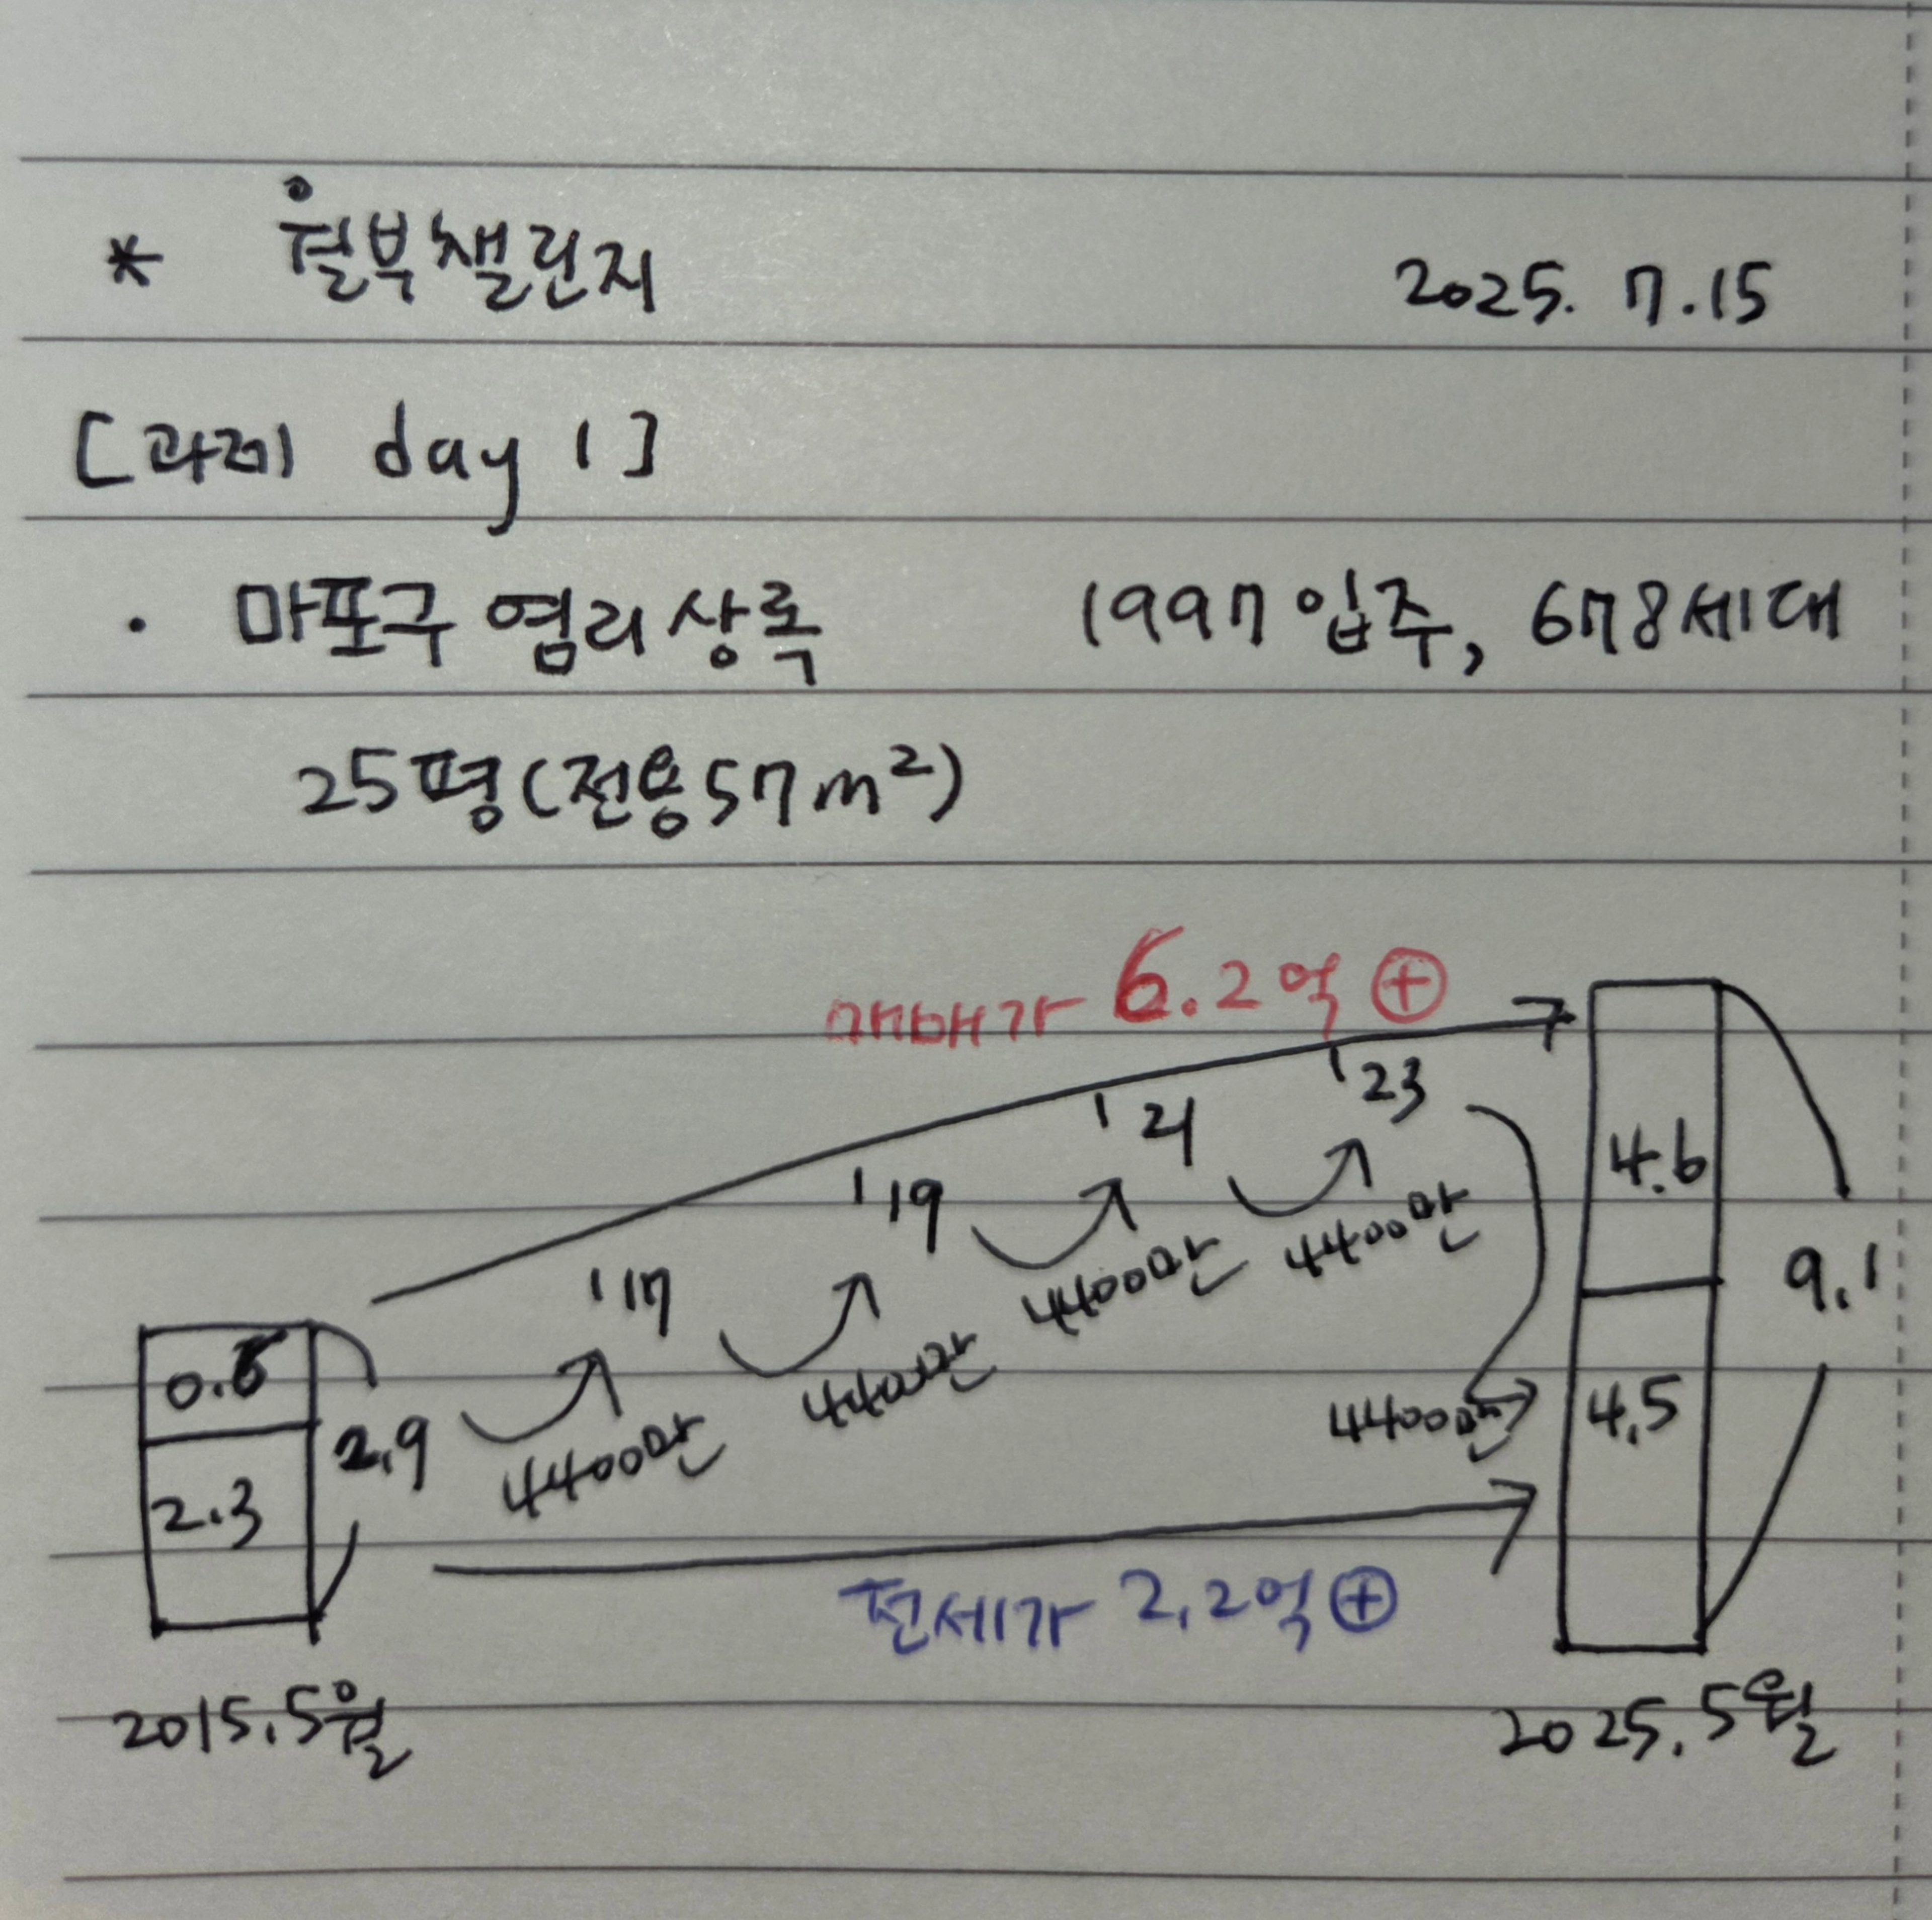 * 월부챌린지 2025. 7.15
[과제 day 1]
· 마포구 염리상록 1997입주, 678세대
25평(전용57m²)
매매가 6.2억 ⊕
'17 '19 '21 '23
4400만 4400만 4400만 4400만 4400만
0.6
2.3
2.9
4.6
4.5
9.1
전세가 2.2억 ⊕
2015.5월 2025.5월